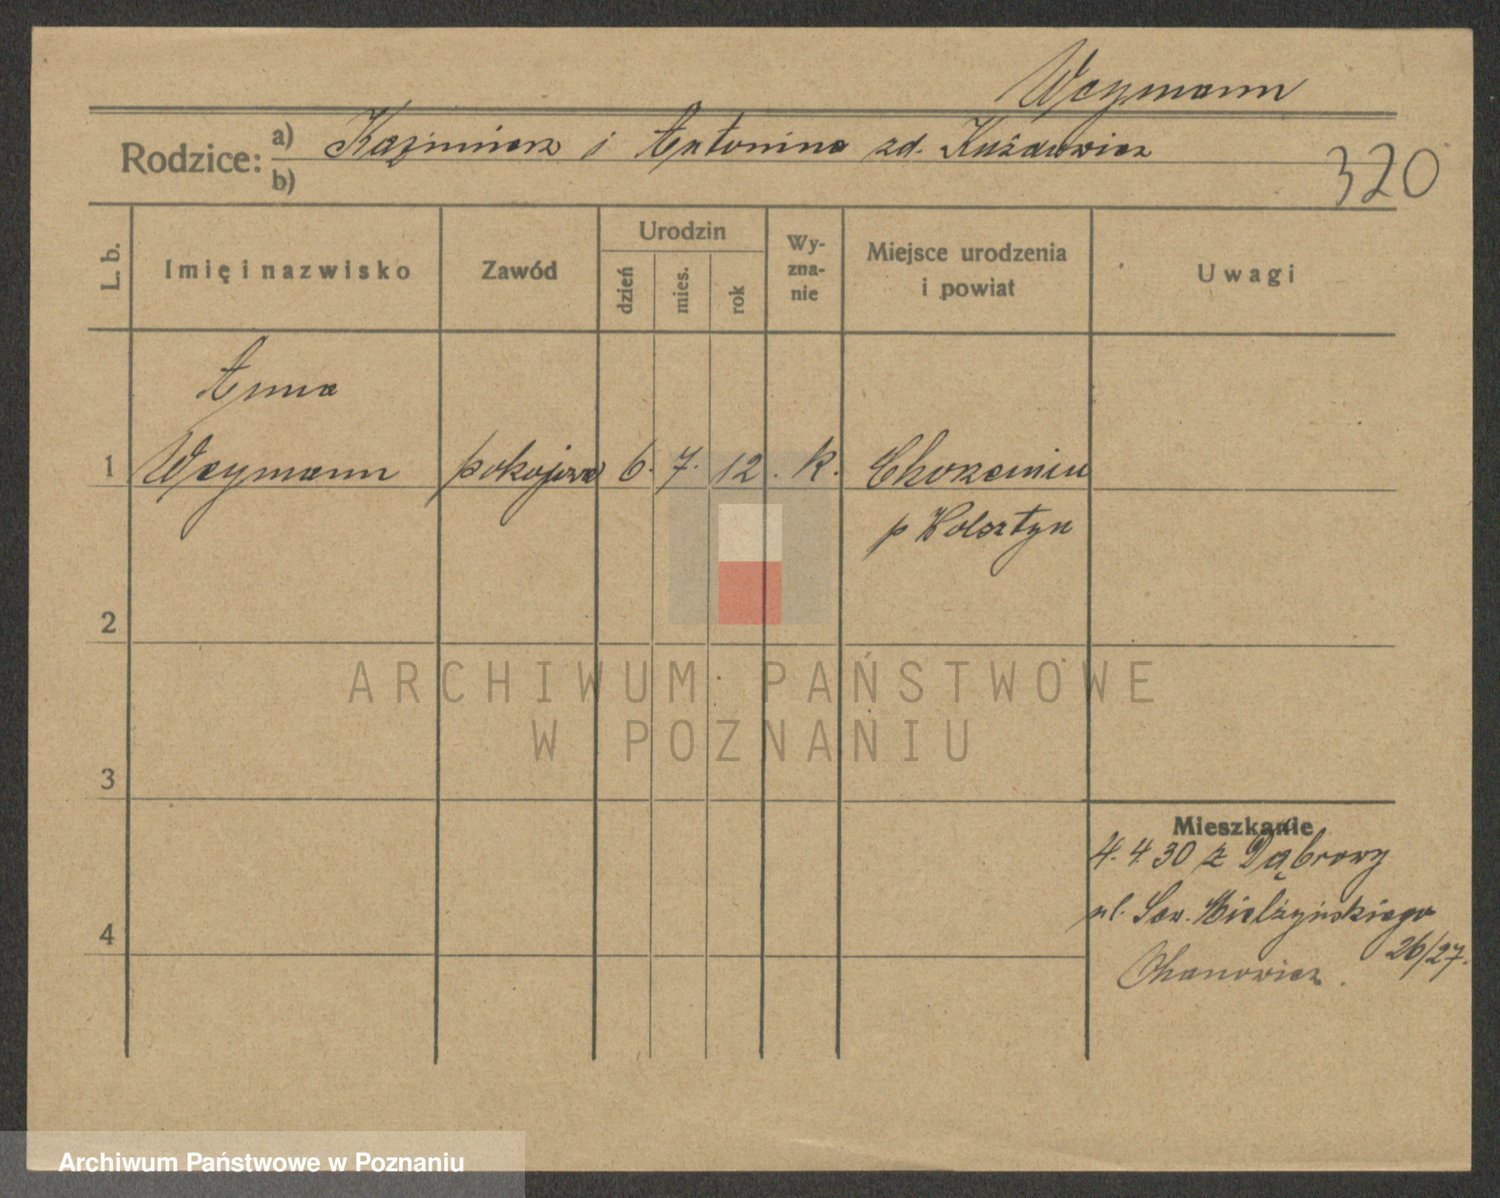 Weymann
Rodzice: a) Kazimierz i Antonina zd.
b)
320
L. b.
Imię i nazwisko
Zawód
Urodzin
dzień
mies.
rok
Wy-
zna-
nie
Miejsce urodzenia
i powiat
Uwagi
Anna
1 Weymann pokojowa 6. 7. 12. k.
p Wolsztyn
2
3
4
Mieszkanie
4. 4 30 z Dąbrowy
ul. Sew. Mielżyńskiego
26/27.
ARCHIWUM PAŃSTWOWE
W POZNANIU
Archiwum Państwowe w Poznaniu